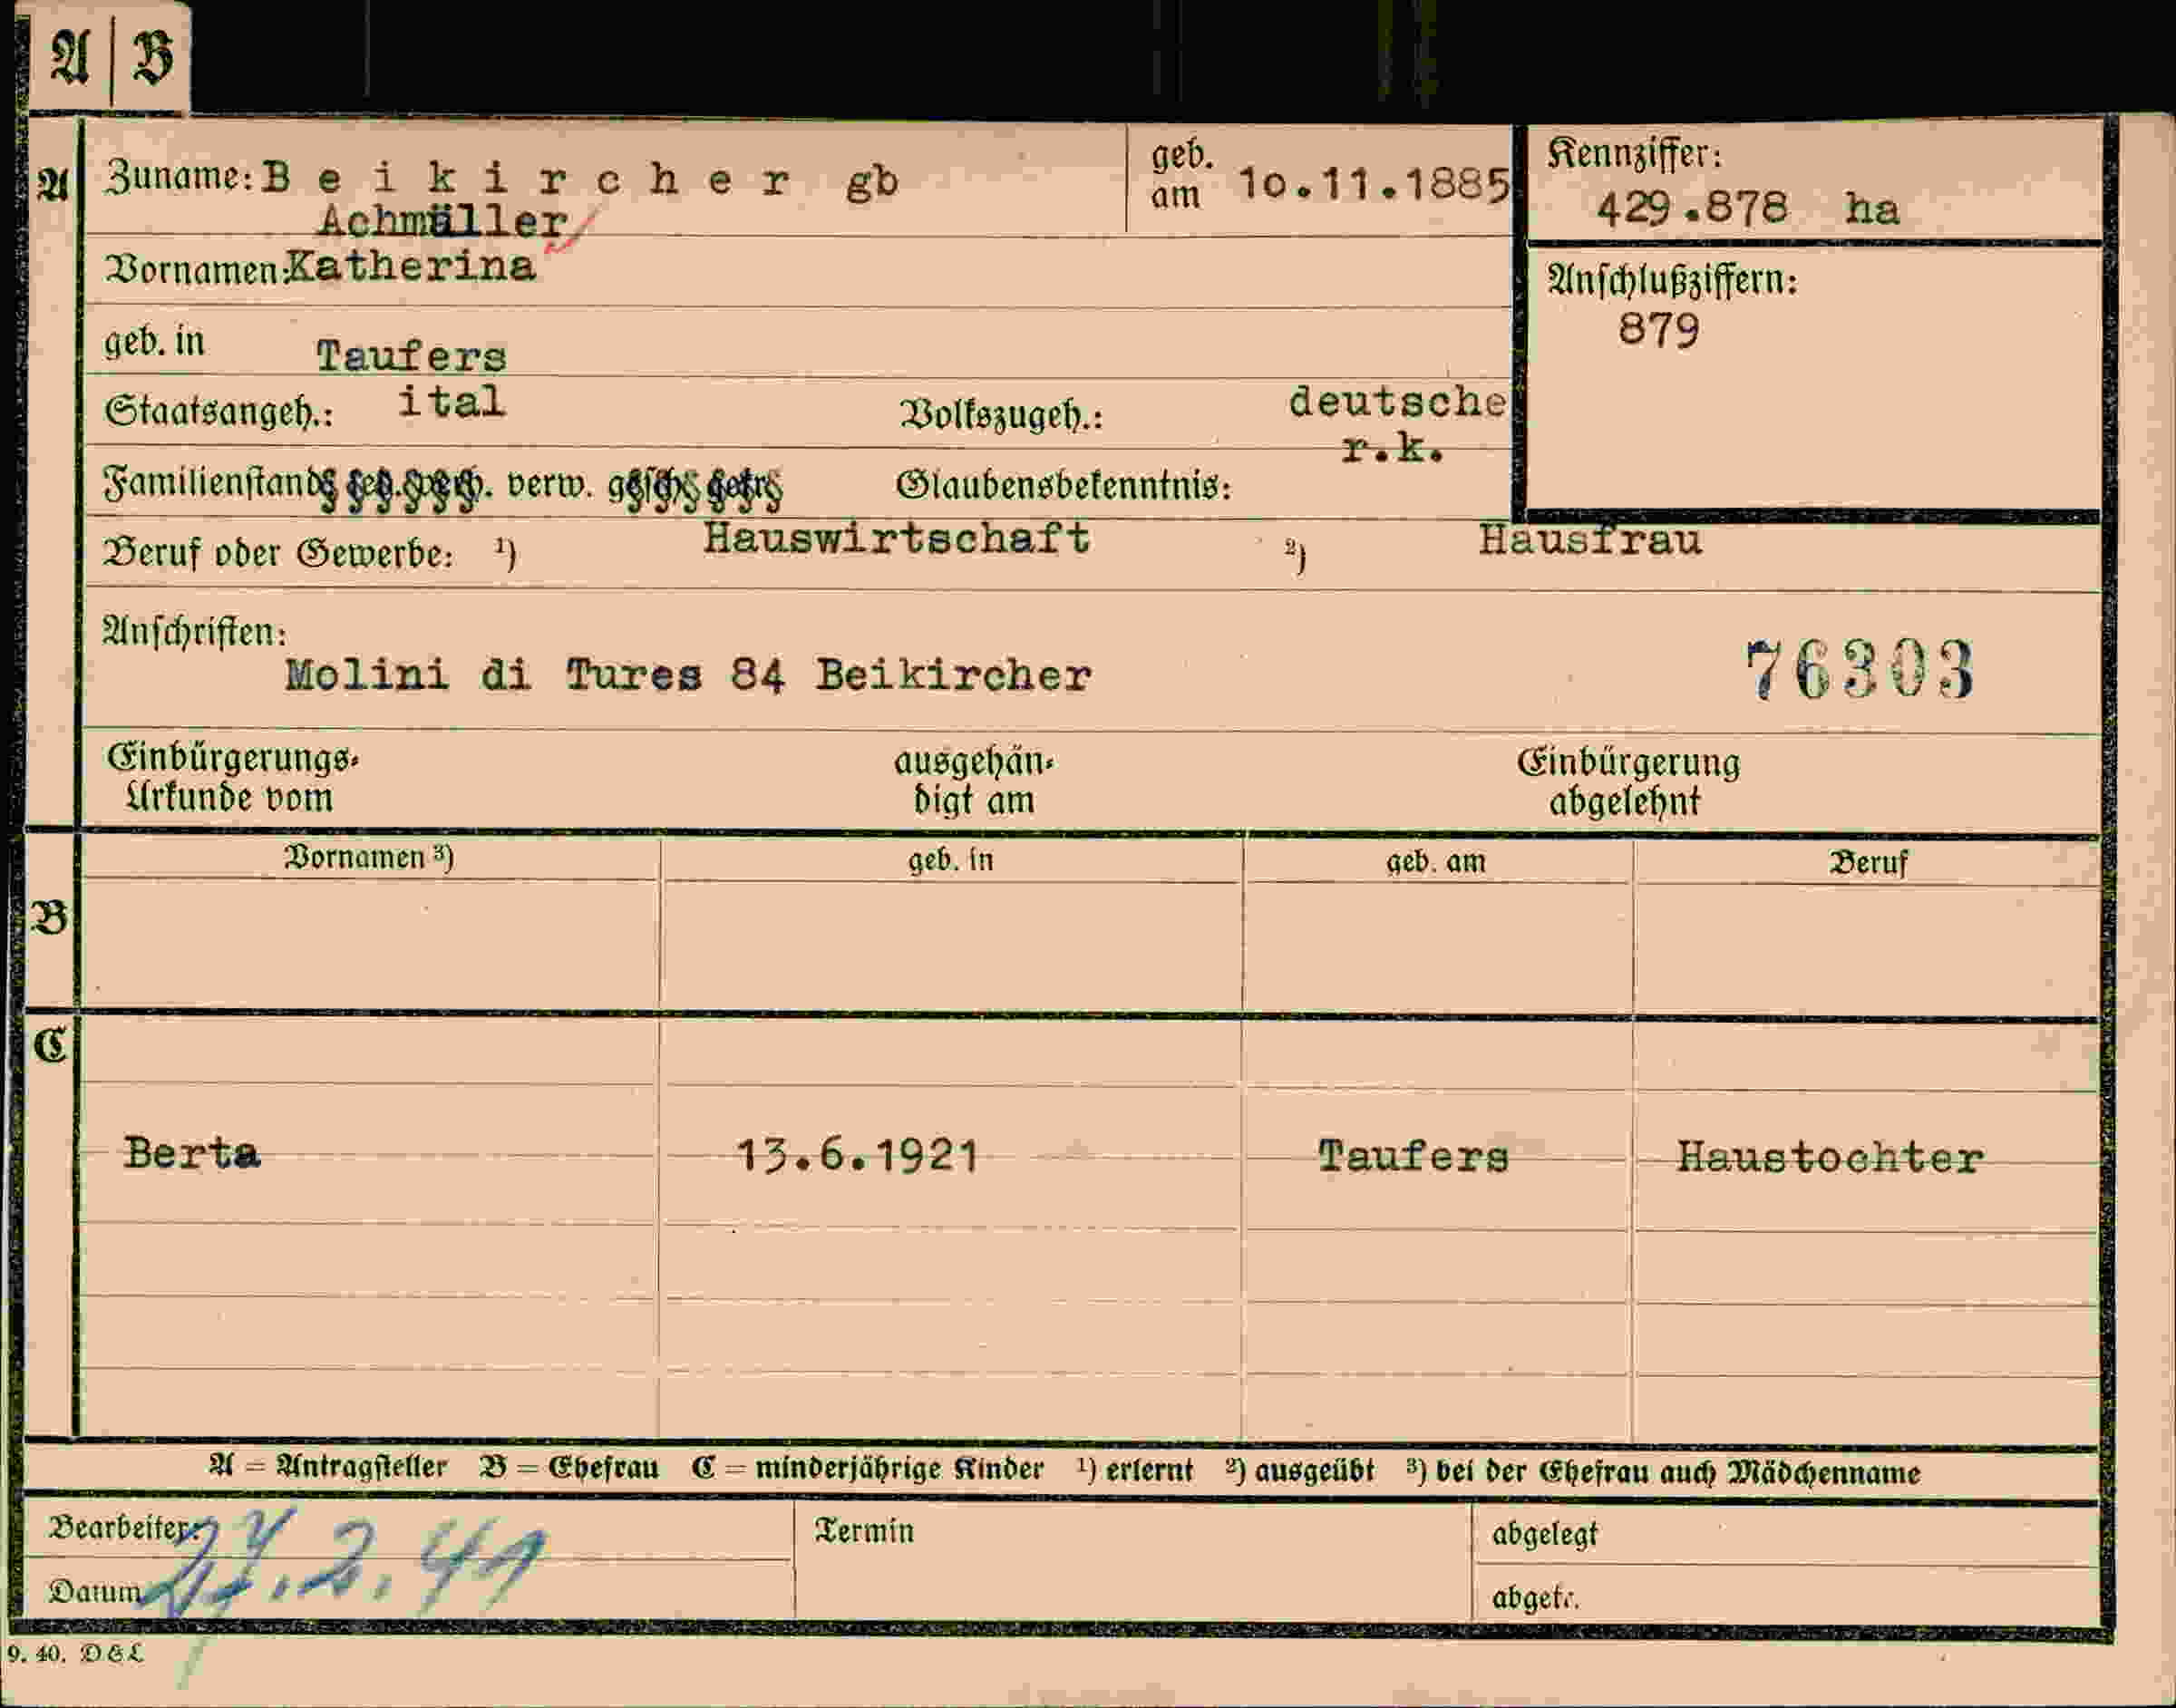 A | B
A
Zuname: Beikircher gb
Achmüller
geb. am 10.11.1885
Kennziffer:
429.878 ha
Vornamen: Katherina
Anschlußziffern:
879
geb. in Taufers
Staatsangeh.: ital Volkszugeh.: deutsche
r.k.
Familienstand led. verh. verw. gesch. getr. Glaubensbekenntnis:
Beruf oder Gewerbe: 1) Hauswirtschaft 2) Hausfrau
Anschriften:
Molini di Tures 84 Beikircher
76303
Einbürgerungs-
Urkunde vom
ausgehän-
digt am
Einbürgerung
abgelehnt
Vornamen 3) geb. in geb. am Beruf
B
C
Berta 13.6.1921 Taufers Haustochter
A = Antragsteller B = Ehefrau C = minderjährige Kinder 1) erlernt 2) ausgeübt 3) bei der Ehefrau auch Mädchenname
Bearbeiter: Termin abgelegt
Datum abgetr.
9. 40. D&L